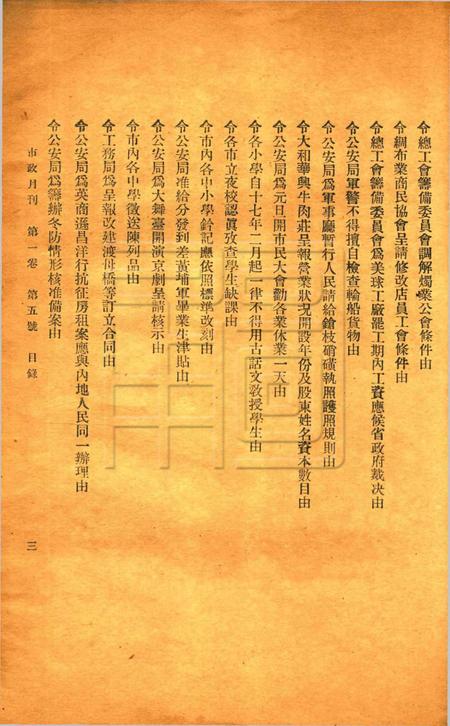 令總工會籌備委員會調解燭業公會條件由
令綢布業商民協會呈請修改店員工會條件由
令總工會籌備委員會爲美球工廠罷工期內工資應候省政府裁决由
令公安局軍警不得擅自檢查輪船貨物由
令公安局爲軍事廳暫行人民請給鎗枝硝磺執照護照規則由
令大和華興牛肉莊呈報營業狀况開設年份及股東姓名資本數目由
令公安局爲元旦開市民大會勸各業休業一天由
令各小學自十七年二月起一律不得用古話文敎授學生由
令各市立夜校認眞攷查學生缺課由
令市內各中小學鈐記應依照標準改刻由
令公安局准給分發到差黃埔軍畢業生津貼由
令公安局爲大舞臺開演京劇呈請核示由
令市內各中學徵送陳列品由
令工務局爲呈報改建渡母橋等訂立合同由
令公安局爲英商遜昌洋行抗征房租案應與內地人民同一辦理由
令公安局爲籌辦冬防情形核准備案由
市政月刊 第一卷 第五號 目錄 三